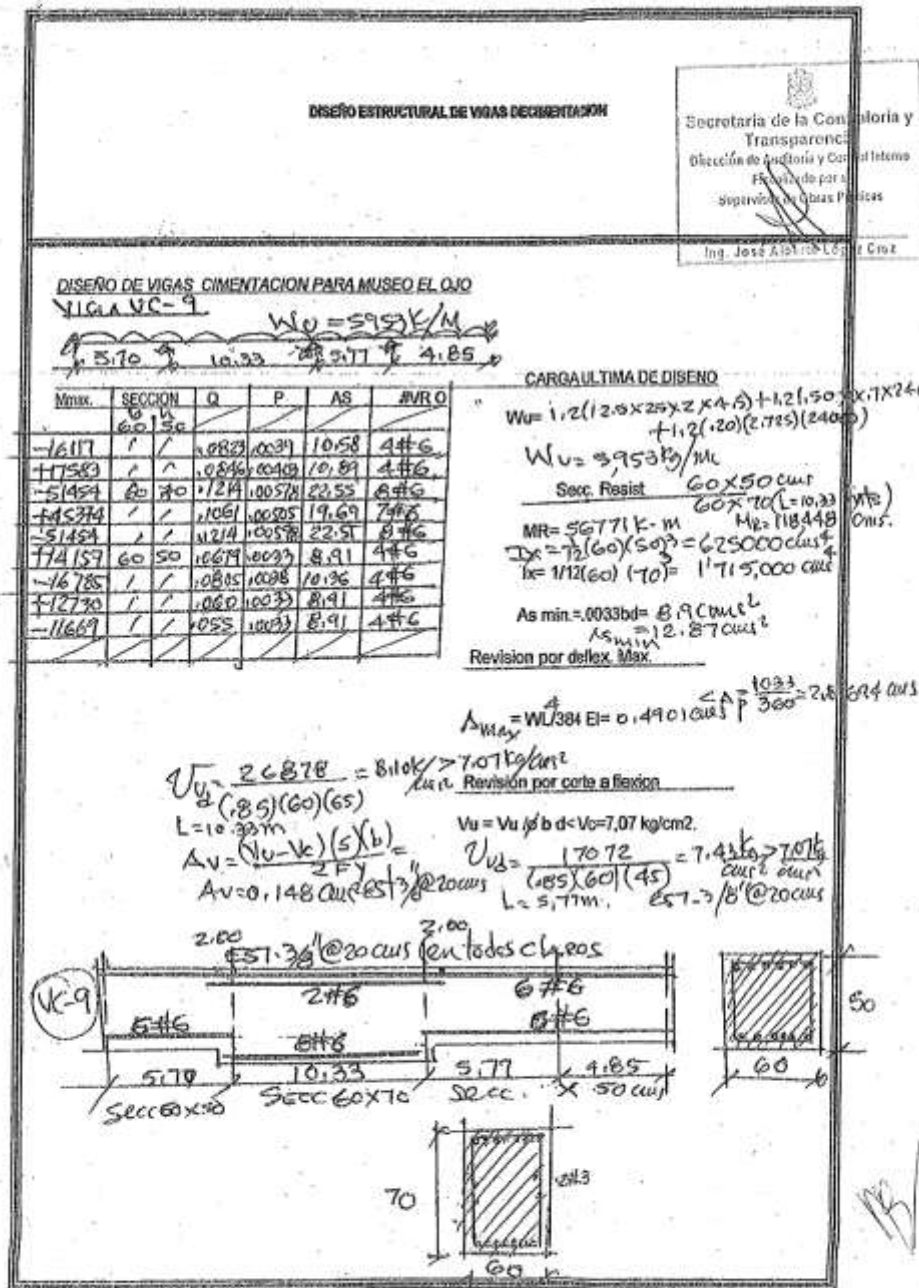 DISEÑO ESTRUCTURAL DE VIGAS DECIMENTACION
Secretaria de la Contraloria y
Transparencia
Dirección de Auditoria y Control Interno
Fiscalizado por
Supervisor de Obras Públicas
Ing. José Alberto López Cruz
DISEÑO DE VIGAS CIMENTACION PARA MUSEO EL OJO
VIGA VC-9
WU = 5953 K/M
5.70 10.33 5.77 4.85
Mmax. SECCION Q P AS #VR O
60 50
-16117 / / .0823 .0039 10.58 4#6
+17583 / / .0846 .00403 10.89 4#6
-51454 60 70 .1214 .00578 22.55 8#6
+45374 .1061 .00505 19.69 7#6
-51454 .1214 .00578 22.51 8#6
+14159 60 50 .0679 .0033 8.91 4#6
-16785 / / .0805 .0038 10.36 4#6
+12730 / / .060 .0033 8.91 4#6
-11669 / / .055 .0033 8.91 4#6
CARGA ULTIMA DE DISENO
+1.2(.20)(2.725)(2400)
WU = 5,953 kg/ML
Secc. Resist 60X50 cms
60X70 (L=10.33 mts)
MR= 56771 K-m MR= 118448
Ix = 1/12(60)(50)3 = 625000 cms4
Ix= 1/12(60) (70)3= 1'715,000 cms4
As min.=.0033bd= 8.91 cms2
As min = 12.87 cms2
Revision por deflex. Max.
Δ Max = WL4/384 EI= 0.4901 cms < Δp = 1033/360 = 2.8694 cms
Vu = 26878/(.85)(60)(65) = 8.10 k/cm2 > 7.07 kg/cm2
L=10.33m
Revisión por corte a flexion
Vu = Vu /ø b d< Vc=7,07 kg/cm2.
Av = (Vu-Vc)(S)(b)/2Fy =
Av=0.148 cm2 EST 3/8"@20cms
17072/(.85)(60)(45) = 7.43 kg/cms2 > 7.07 kg/cm2
L= 5.77m. EST-3/8"@20cms
2.00 2.00
EST-3/8"@20 cms (en todos claros
VC-9
2#6 6#6
5#6 8#6 5#6
50
60
5.70 10.33 5.77 4.85
Secc 60X50 SECC 60X70 Secc. X 50 cms
70
60